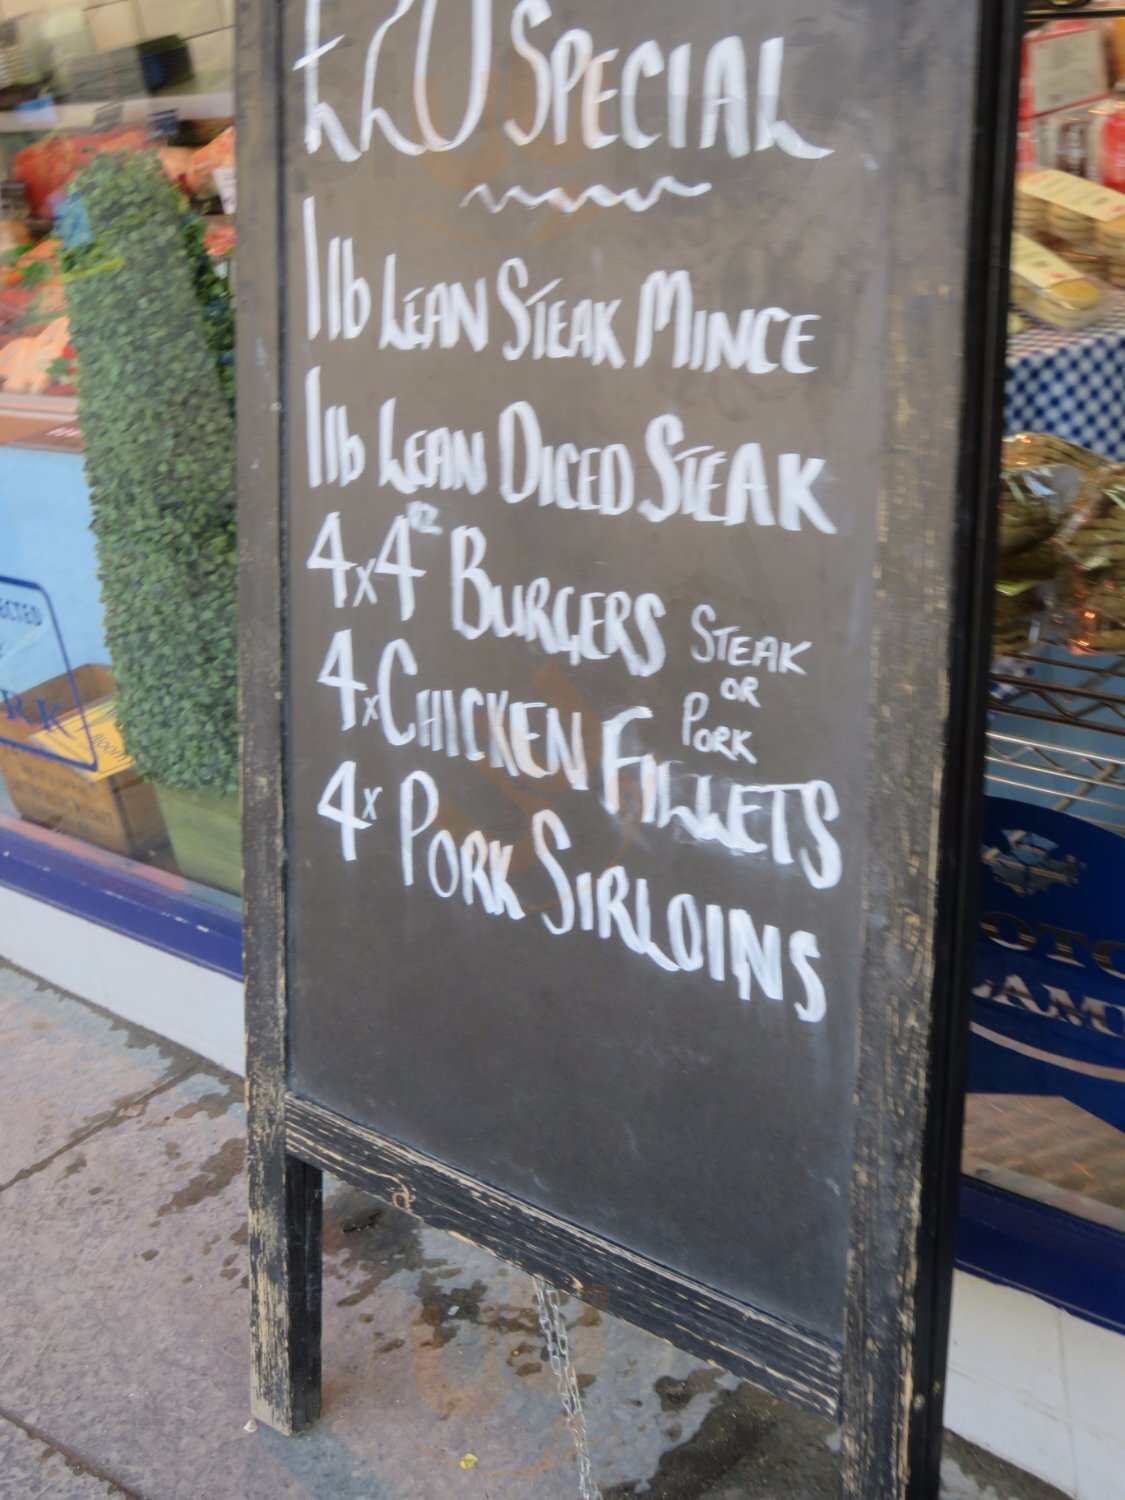 £20 SPECIAL
1lb LEAN STEAK MINCE
1lb LEAN DICED STEAK
4x4oz BURGERS STEAK
OR
PORK
4x CHICKEN FILLETS
4x PORK SIRLOINS